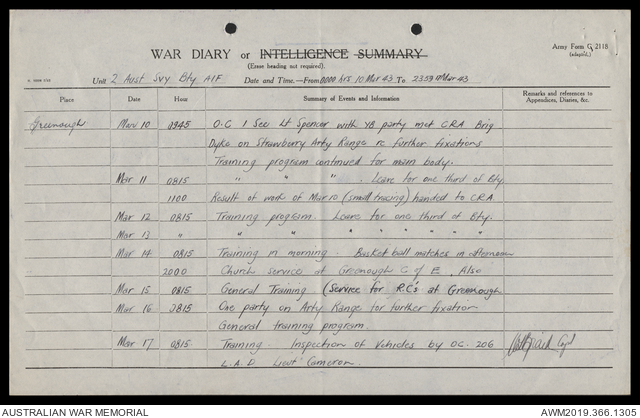 WAR DIARY or INTELLIGENCE SUMMARY
(Erase heading not required).
Army Form C 2118
(adapted.)
Unit 2 Aust Svy Bty AIF Date and Time.—From 0000 hrs 10 Mar 43 To 2359 Mar 43
Place Date Hour Summary of Events and Information Remarks and references to Appendices, Diaries, &c.
Greenough Mar 10 0945 O.C 1 Sec Lt Spencer with YB party met C.R.A. Brig
Dyke on Strawberry Arty Range re further fixations
Training program continued for main body.
Mar 11 0815 " " " . Leave for one third of Bty
1100 Result of work of Mar 10 (small tracing) handed to CRA.
Mar 12 0815 Training program. Leave for one third of Bty.
Mar 13 " " " " " " " "
Mar 14 0815 Training in morning. Basket ball matches in afternoon
2000 Church service at Greenough C of E, Also
Mar 15 0815 General Training (Service for R.C's at Greenough
Mar 16 0815 One party on Arty Range for further fixation
General training program.
Mar 17 0815 Training. Inspection of Vehicles by OC. 206
L.A.D Lieut Cameron. Capt
AUSTRALIAN WAR MEMORIAL AWM2019.366.1305